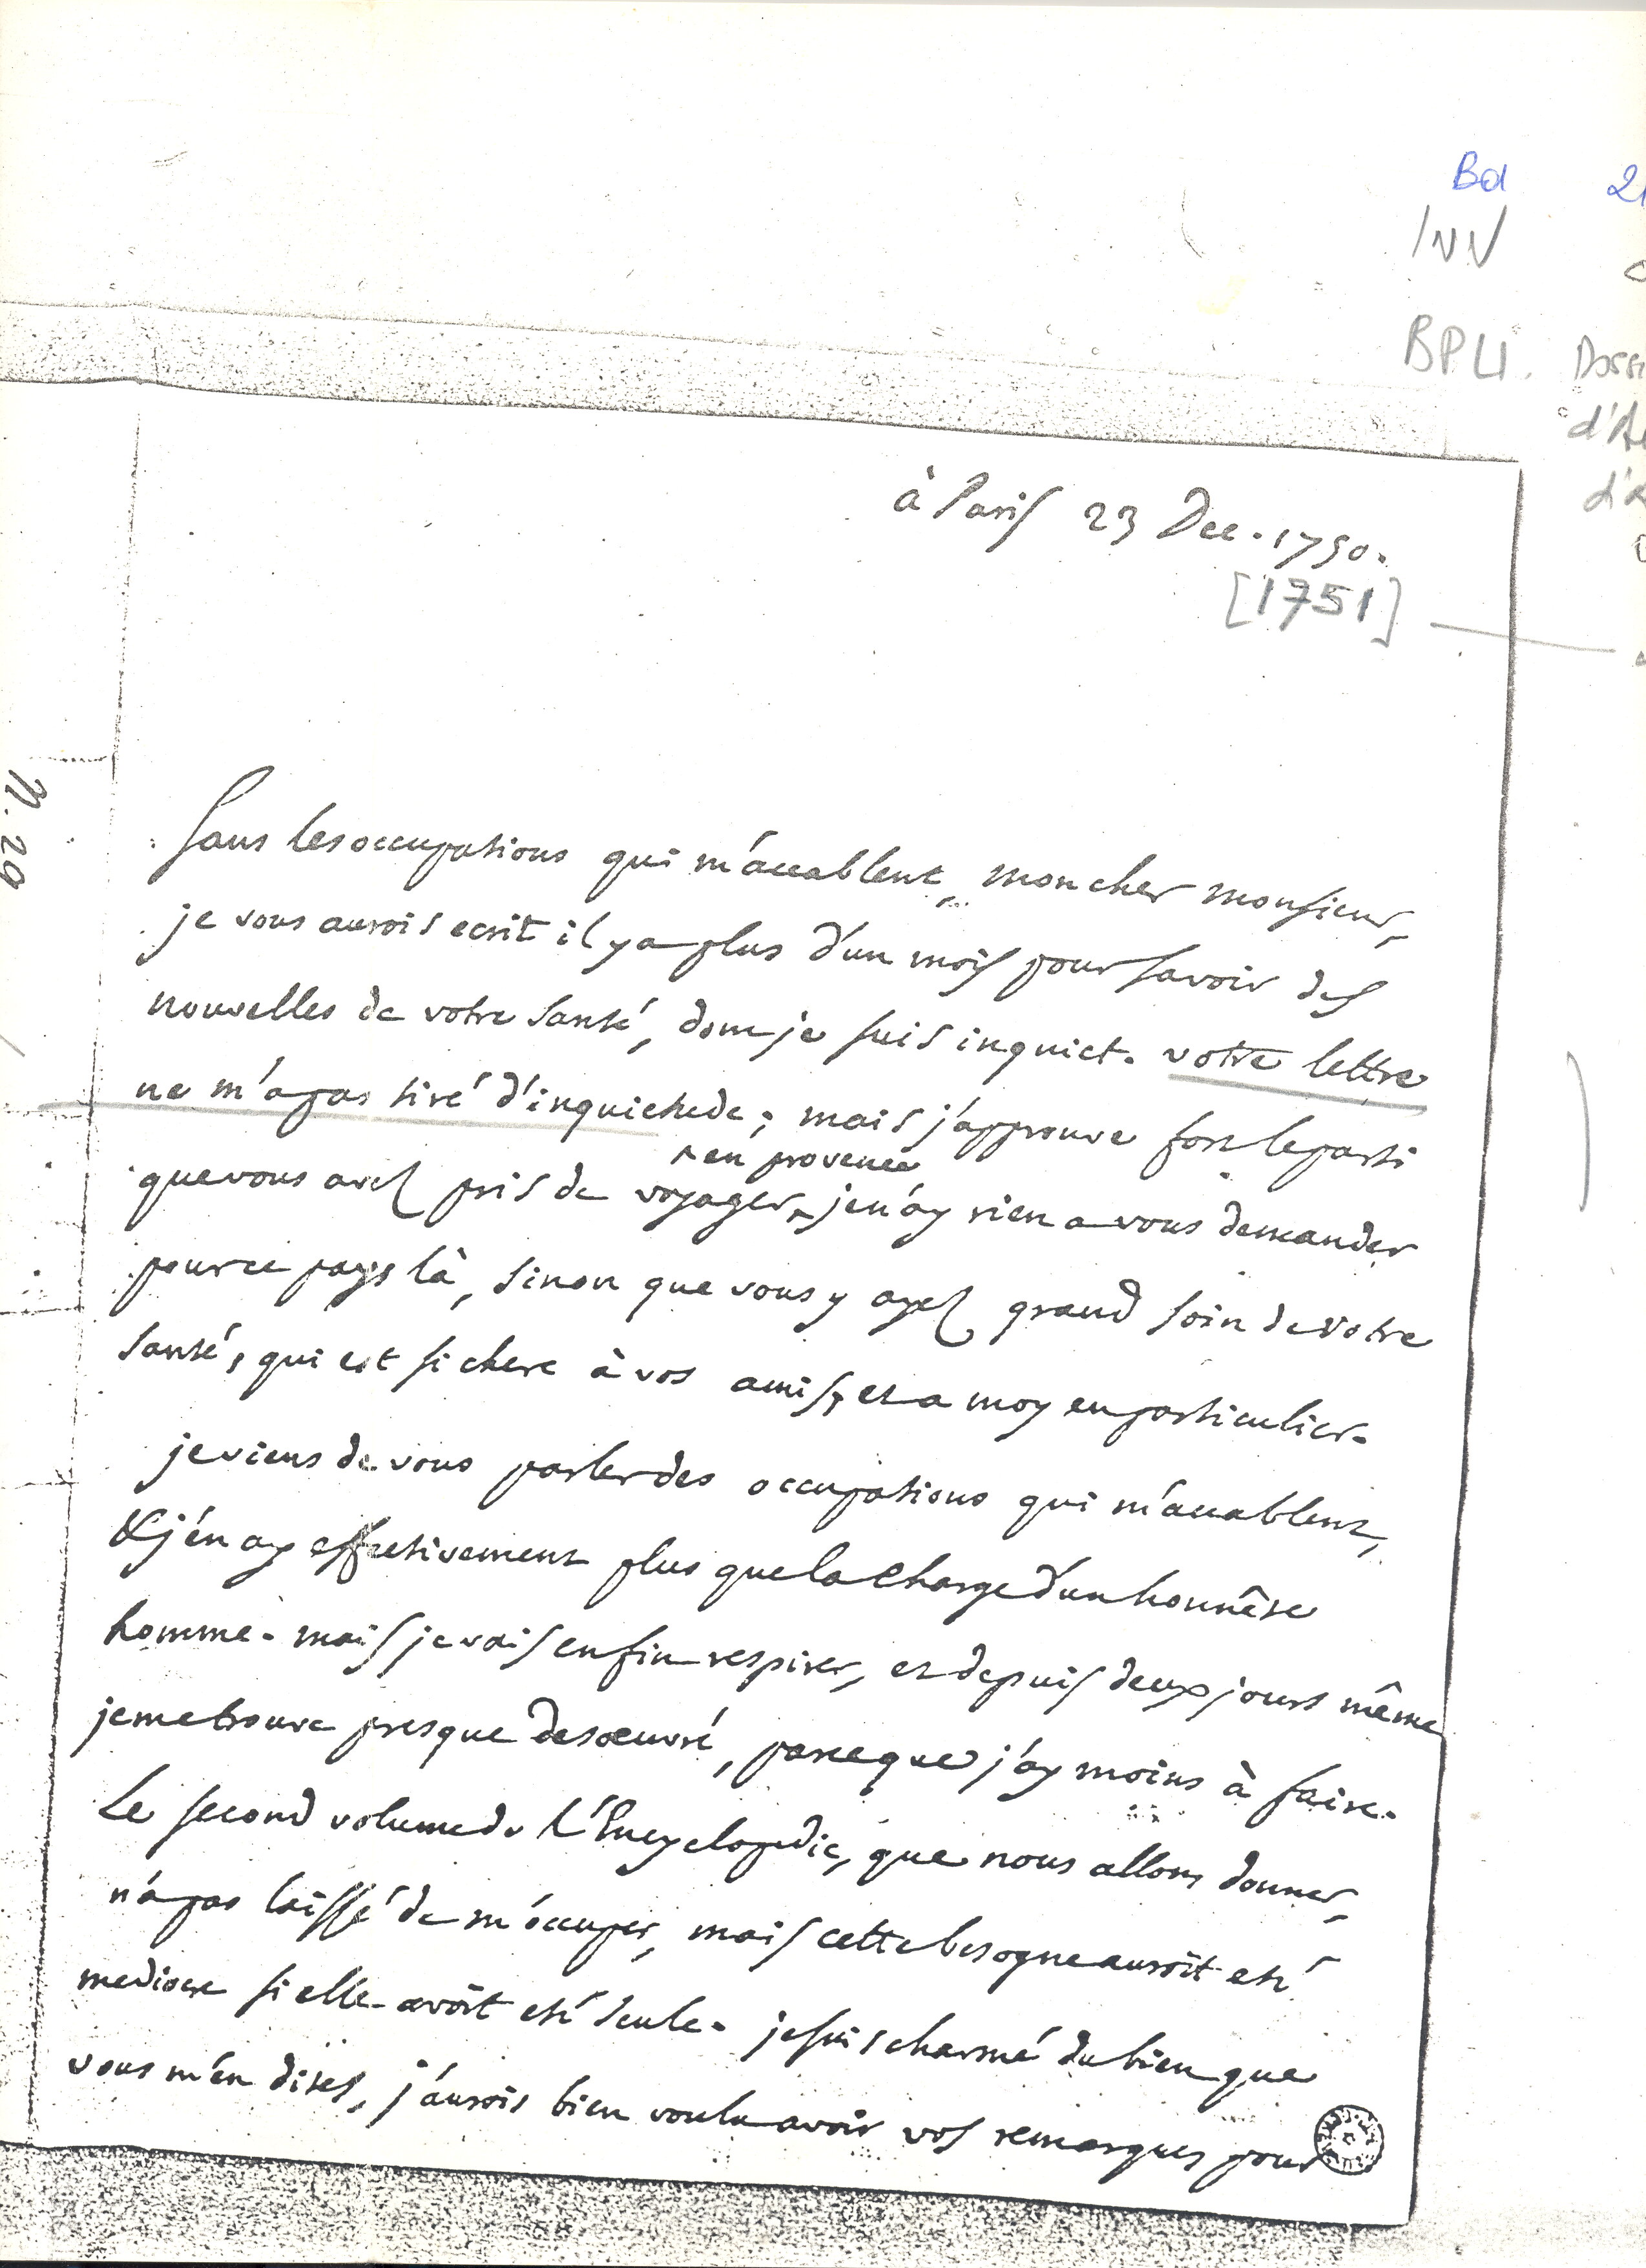 Bd 21
INV
BPU. Doss
d'A
à Paris 23 Dec. 1750.
[1751]
n. 29
Sans les occupations qui m'accablent, mon cher monsieur,
je vous aurois ecrit il y a plus d'un mois pour savoir des
nouvelles de votre santé, dont je suis inquiet. votre lettre
ne m'a pas tiré d'inquietude; mais j'approuve fort le parti
que vous avez pris de voyager en provence, je n'ay rien a vous demander
pour ce pays là, sinon que vous y ayez grand soin de votre
santé, qui est si chere à vos amis, et a moy en particulier.
je viens de vous parler des occupations qui m'accablent,
& j'en ay effectivement plus que la charge d'un honnête
homme. mais je vais enfin respirer, et depuis deux jours même
je me trouve presque desoeuvré, parceque j'ay moins à faire.
Le second volume de L'Encyclopedie, que nous allons donner,
n'a pas laissé de m'occuper, mais cette besogne auroit eté
mediocre si elle avoit eté seule. je suis charmé du bien que
vous m'en dites, j'aurois bien voulu avoir vos remarques pour